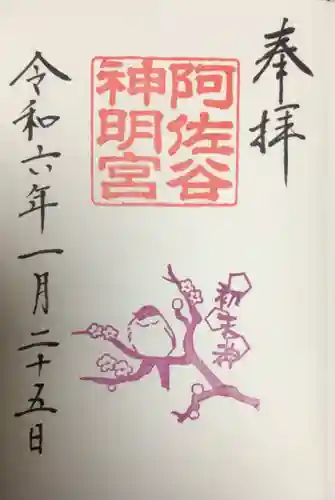 奉拝
阿佐谷
神明宮
初天神
令和六年一月二十五日